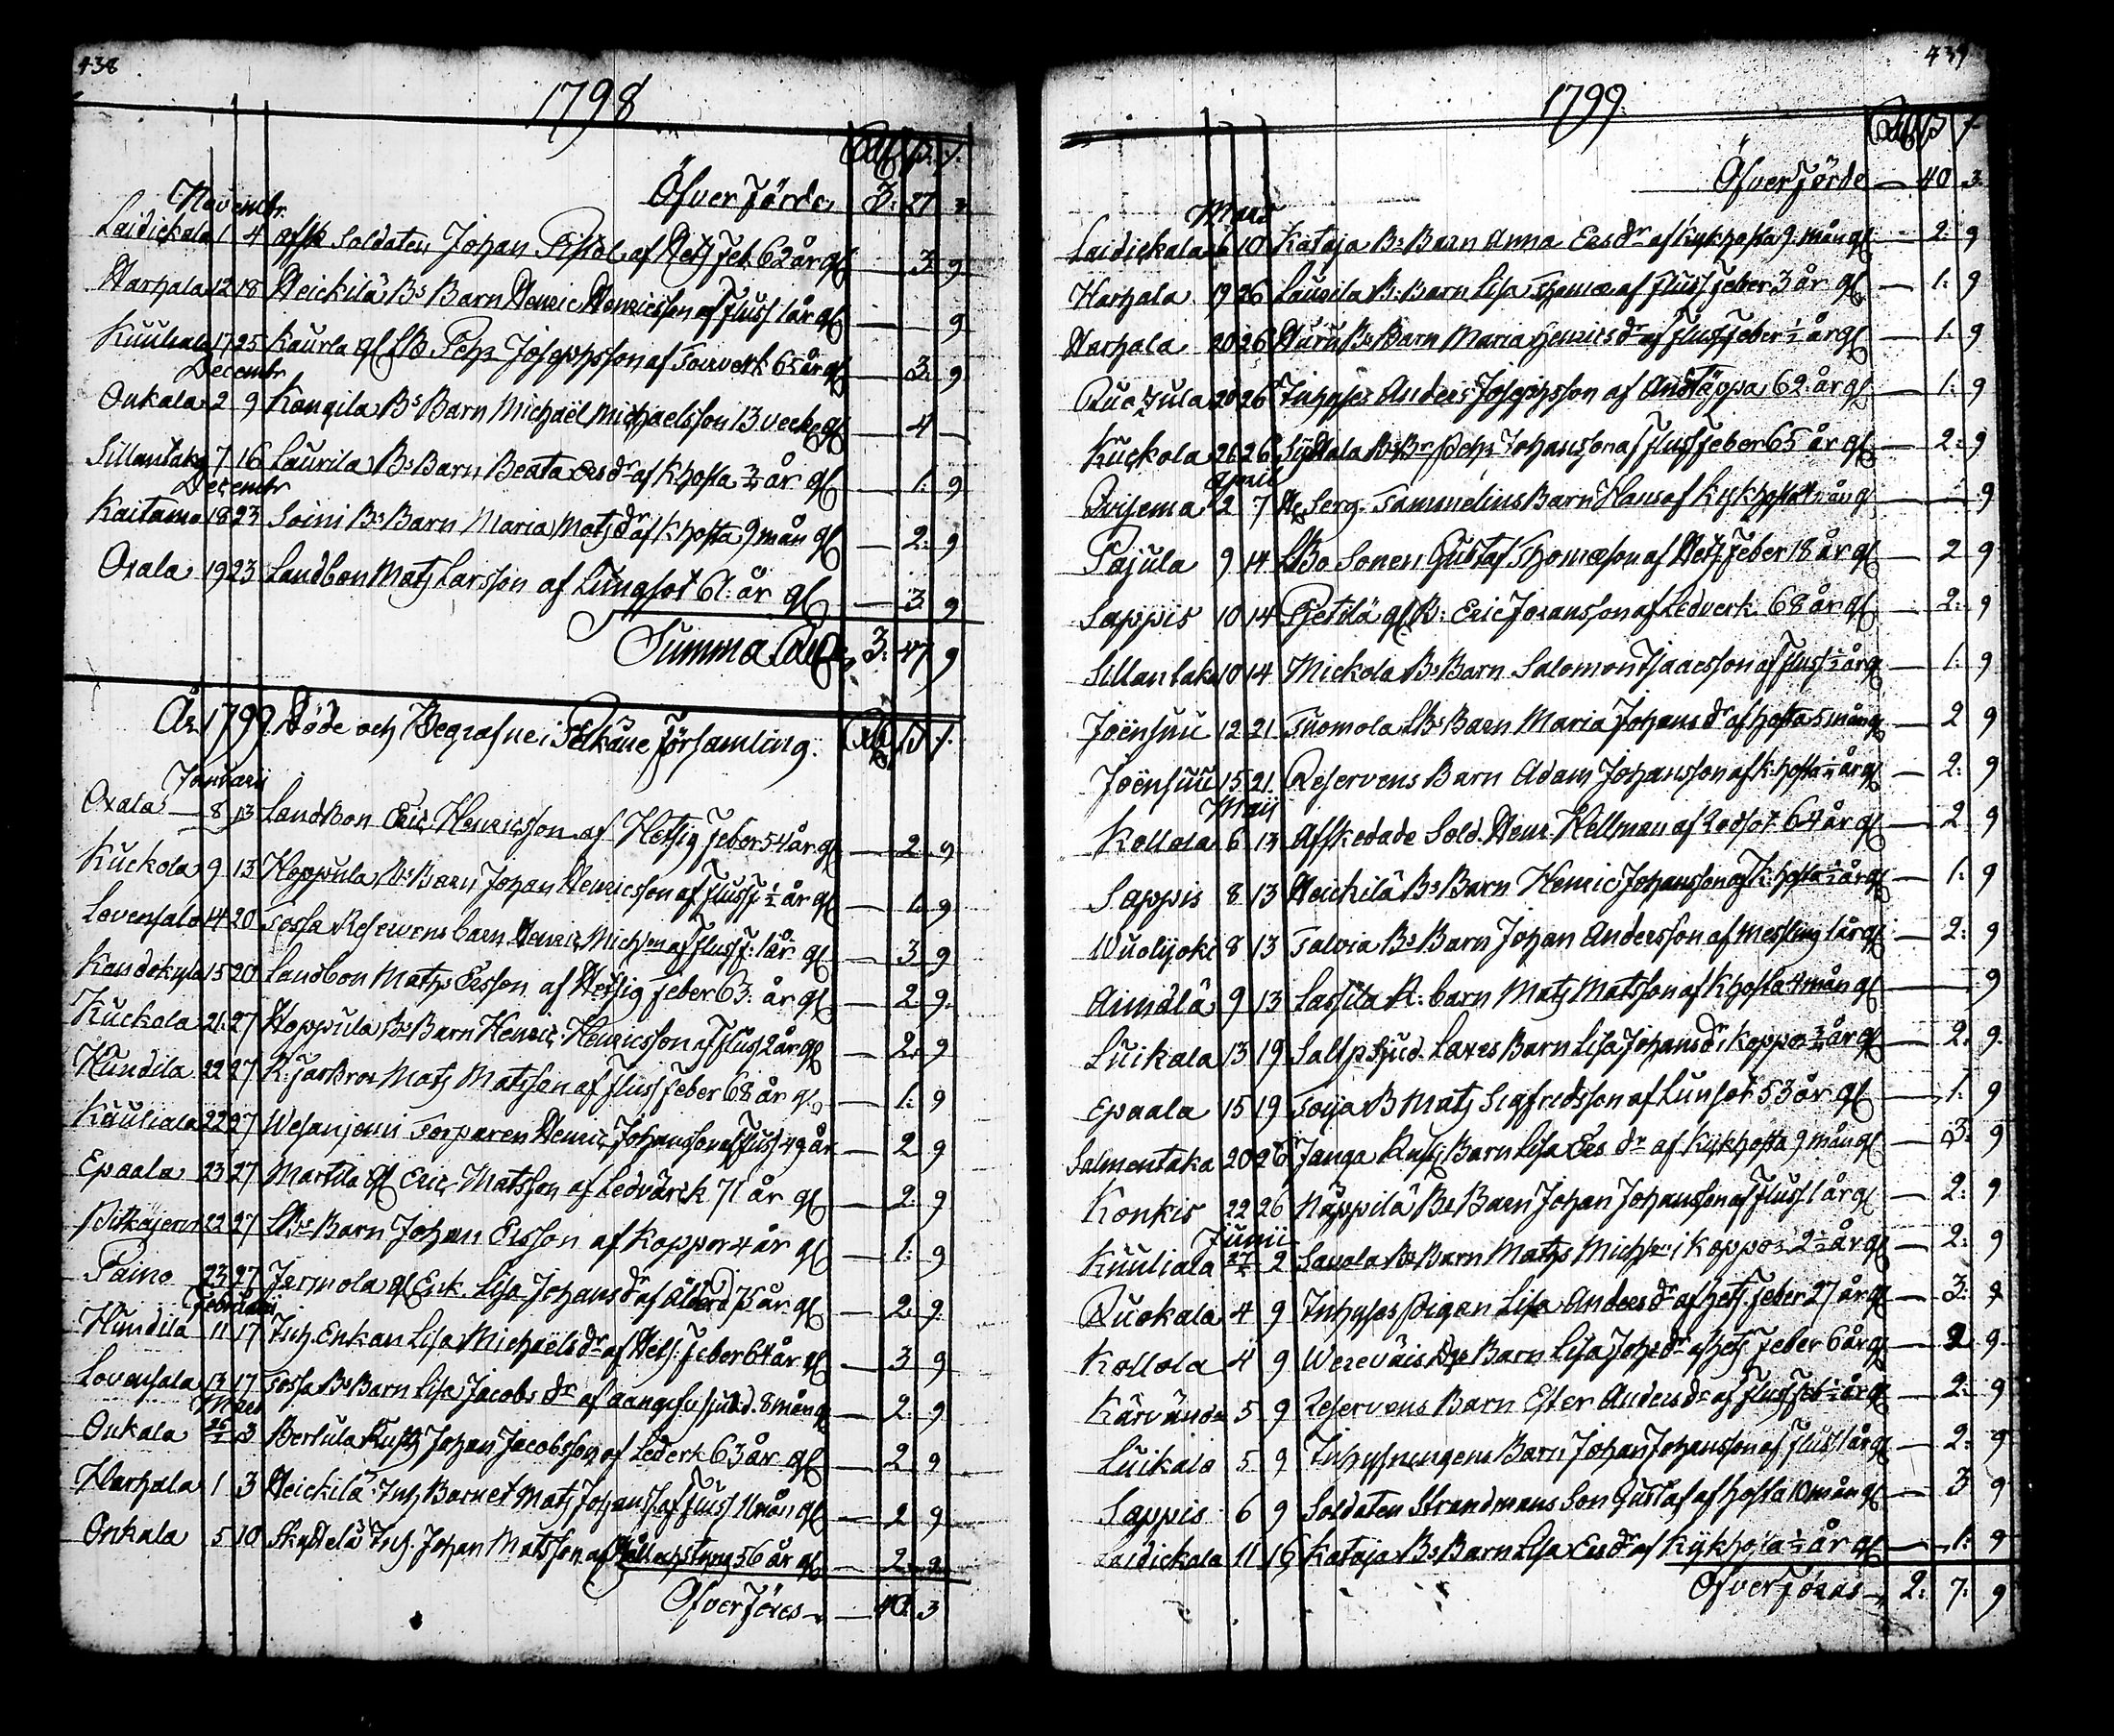 438
1798
Rdr ß. r.
Öfverförde 3: 27 3
Novembr.
Laidickala 1 4 afsk Soldaten Johan Pistol af Hets feb. 62 år gl — 3: 9
Harhala 12 18 Heickilä Bs Barn Henric Henricsson af Fluss 1 år gl — 9
Kuuliala 17 25 Kaurla gl Sk Pehr Josephsson af 65 år gl — 3: 9
Decembr
Onkala 2 9 Kangila Bs Barn Michaël Michaelsson 13 veck gl — 4 —
Sillantaka 7 16 Laurila Bs Barn Beata Ersdr af Khosta ¾ år gl — 1: 9
Decembr
Kaitamo 18 23 Soini Bs Barn Maria Matsdr af Khosta 9 mån gl — 2: 9
Oxala 19 23 Landbon Mats Larsson af Lungsot 61: år gl — 3: 9
Summa Rdr 3: 47 9
År 1799. Döde och Begrafne i Pelkäne Församling. Rdr ß r.
Januarii
Oxala — 8 13 Landbon Eric Henricsson af Hetsig feber 54 år gl — 2: 9
Kuckola 9 13 Hoppula Bs Barn Johan Henricsson af Flussf ½ år gl — 1: 9
Lovensala 14 20 Sossa Reservens barn Henric Michson af Fluss f: 1 år gl — 3 9
Kandokyla 15 20 Landbon Mats Ersson af Hetsig feber 63: år gl — 2: 9.
Kuckola 21: 27 Hoppula Bs Barn Henric Henricsson af Fluss 2 år gl — 2: 9
Hundila 22 27 K: Mats Matsson af Fluss feber 68 år gl — 1: 9
Kuuliala 22 27 Wesaniemi Torparen Henric Johansson af Fluss 49 år — 2 9
Epaala 23 27 Martila gl Eric Matsson af Ledvärck 71 år gl — 2: 9
Pitkäjervi 22 27 Bs Barn Johan Ersson af Koppor 4 år gl — 1: 9
Paino 23 27 Jermola gl Enk. Lisa Johansdr af Ålderd 75 år gl — 2: 9
Februarii
Hundila 11 17 Inh. Enkan Lisa Michaëlsdr af Hets: feber 64 år gl — 3 9
Lovensala 13 17 Sossa Bs Barn Lisa Jacobsdr af 8 mån gl — 2: 9
Mars
Onkala 3 Bertula Johan Jacobsson af Lederk 63 år gl — 2 9
Harhala 1 3 Heickilä Inh Barnet Mats Johanss af Fluss 11 mån gl — 2 9
Onkala 5 10 Skyttelä Inh. Johan Matsson af 56 år gl — 2: 9
Öfverföres — 40: 3
439
1799.
Rdr ß r
Öfverförde — 40 3.
Mars
Laidickala 6 10 Kataja Bs Barn Anna Ersdr af Kykhosta 9: mån gl — 2: 9
Harhala 19 26 Laurila B: Barn Lisa Thomæ af Fluss feber 3 år gl — 1: 9
Harhala 20 26 Bs Barn Maria Henricsdr af Fluss feber ½ år gl — 1: 9
20 26 Inhyses Anders Josephsson af Andtäppa 62: år gl — 1: 9
Kuckola 26 26 Pehr Johansson af Fluss feber 65 år gl — 2: 9
April
2 7 Serg. Tammelins Barn Hans af Kykhosta mån gl — 9
Pajula 9 14 Bo Sonen Gustaf Thomæson af Hets feber 18 år gl — 2 9
Sappis 10 14 Pietilä gl B: Eric Johansson af Ledverk 68 år gl — 2: 9
Sillantaka 10 14 Mickola Bs Barn Salomon Isaacsson af Fluss ½ år gl — 1: 9
Joënsuu 12 21 Tuomola Bs Barn Maria Johansdr af hosta 5 mån gl — 2 9
Joënsuu 15 21 Reservens Barn Adam Johansson af K:hosta ½ år gl — 2: 9
Maij
Kollola 6 13 Affskedade Sold. Henr Hellman af Rodsot 64 år gl — 2 9
Sappis 8 13 Heickilä Bs Barn Henric Johansson af K:hosta ½ år gl — 1: 9
Wuolijoki 8 13 Talvia Bs Barn Johan Andersson af Messling 1 år gl — 2: 9
Aimälä 9 13 Lassila R: barn Mats Matsson af Khosta 4 mån gl — 9
Luikala 13 19 Saltp Sjud. Lares Barn Lisa Johansdr i Koppor ¾ år gl — 2: 9
Epaala 15 19 Toija B Mats Sigfredsson af Lunsot 53 år gl — 1: 9
Salmentaka 20 26 Janga Barn Lisa Ersdr af Kykhosta 9 mån gl — 3: 9
Konkis 22 26 Näppilä Bs Barn Johan Johansson af Fluss 1 år gl — 2: 9
Junii
Kuuliala 2 Savola Bs Barn Mats Michson i Koppor 2½ år gl — 2: 9
Ruokala 4 9 Inhyses Pigan Lisa Andersdr af hets. feber 27 år gl — 3: 9
Kollola 4 9 Wereväis Barn Lisa Johsdr af hets feber 6 år gl — 2 9
Kärvändä 5 9 Reservens Barn Ester Andersdr af Fluss feb ½ år gl — 2: 9
Luikala 5 9 Inhysningens Barn Johan Johansson af Fluss 1 år gl — 2: 9
Sappis 6 9 Soldaten Strandmans Son Gustaf af hosta 10 mån gl — 3 9
Laidickala 11 16 Kataja Bs Barn Lisa Ersdr af Kykhosta ½ år gl — 1: 9
Öfverföres — 2: 7: 9